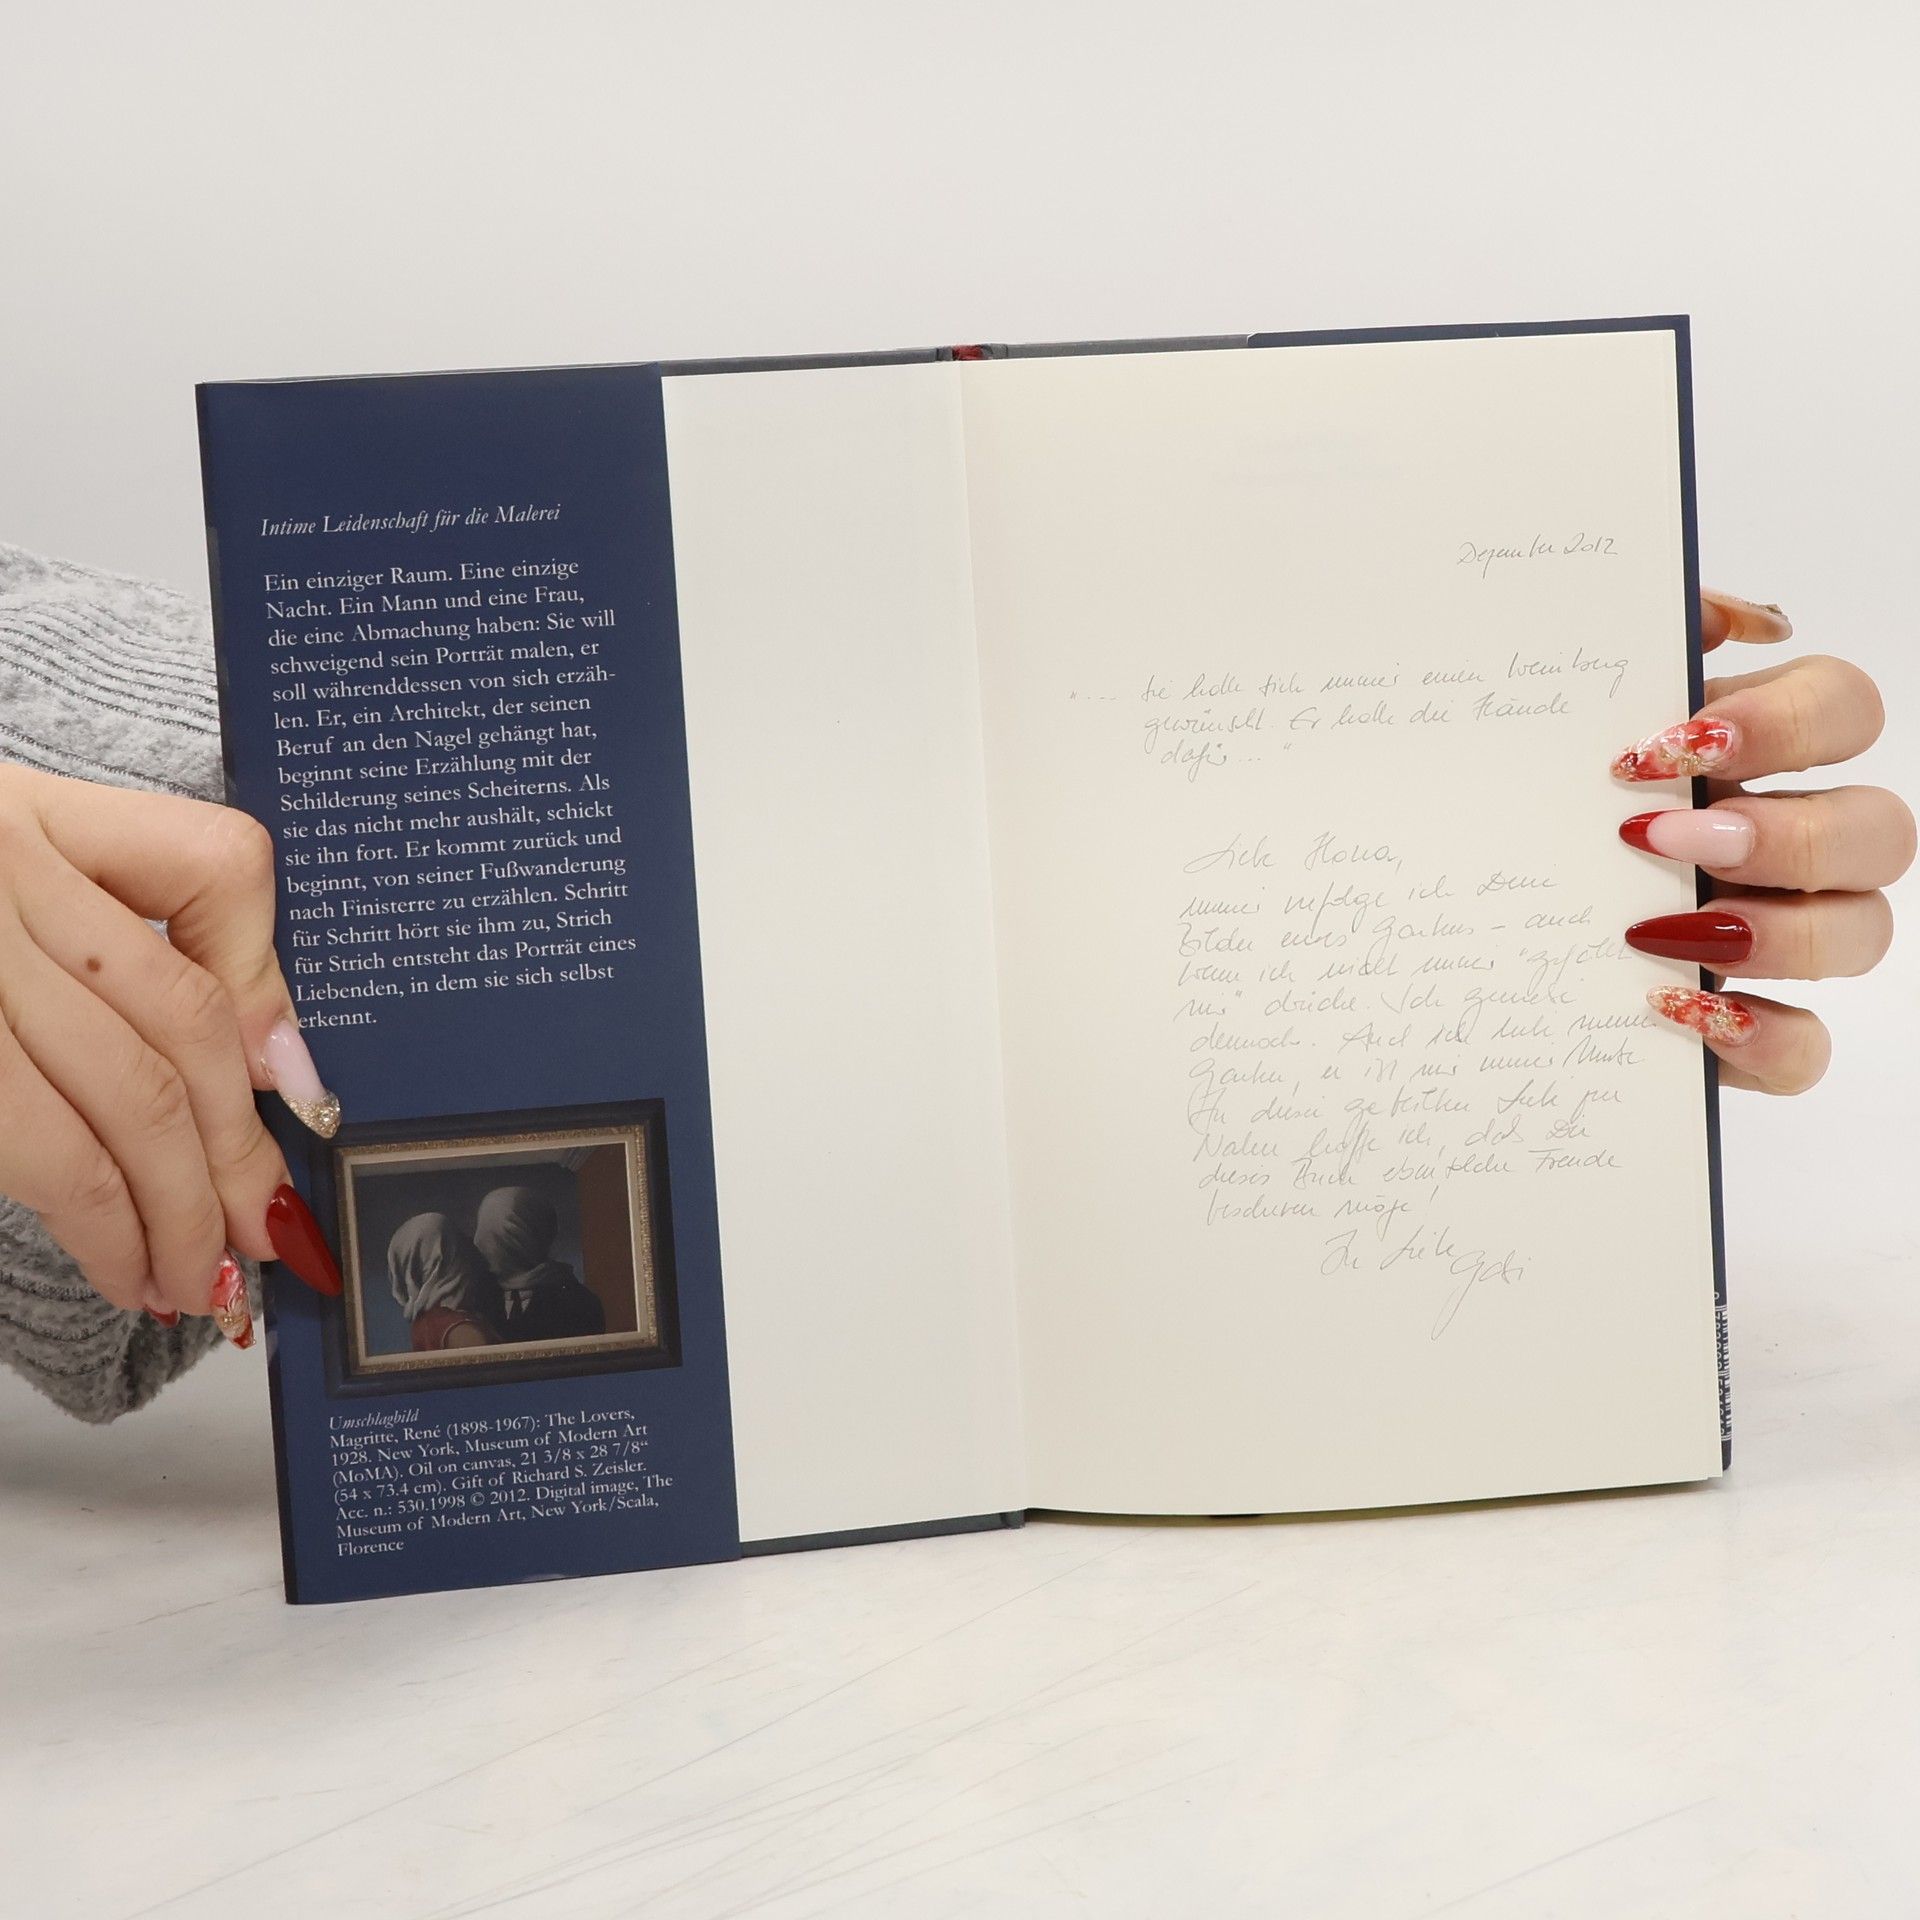 Intime Leidenschaft für die Malerei
Ein einziger Raum. Eine einzige
Nacht. Ein Mann und eine Frau,
die eine Abmachung haben: Sie will
schweigend sein Porträt malen, er
soll währenddessen von sich erzäh-
len. Er, ein Architekt, der seinen
Beruf an den Nagel gehängt hat,
beginnt seine Erzählung mit der
Schilderung seines Scheiterns. Als
sie das nicht mehr aushält, schickt
sie ihn fort. Er kommt zurück und
beginnt, von seiner Fußwanderung
nach Finisterre zu erzählen. Schritt
für Schritt hört sie ihm zu, Strich
für Strich entsteht das Porträt eines
Liebenden, in dem sie sich selbst
erkennt.
Umschlagbild
Magritte, René (1898-1967): The Lovers,
1928. New York, Museum of Modern Art
(MoMA). Oil on canvas, 21 3/8 x 28 7/8“
(54 x 73.4 cm). Gift of Richard S. Zeisler.
Acc. n.: 530.1998 © 2012. Digital image, The
Museum of Modern Art, New York/Scala,
Florence
Dezember 2012
"... Sie hatte sich immer einen Weinberg
gewünscht. Er hatte die Hände
dafür ..."
Liebe Ilona,
immer verfolge ich Deine
Bilder eures Gartens - auch
wenn ich nicht immer "gefällt
mir" drücke. Ich geniesse
dennoch. Auch ich liebe meinen
Garten, er ist mir immer Muse
In dieser geteilten Liebe zur
Natur hoffe ich, daß Dir
dieses Buch ebensolche Freude
bescheren möge!
In Liebe
Gabi